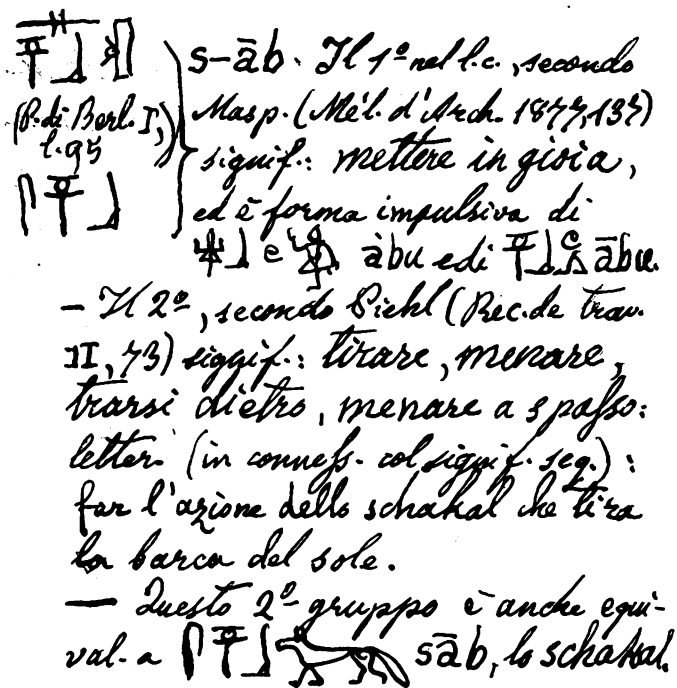 s-āb. Il 1º nel l.c., secondo
(P. di Berl. I, Masp. (Mél. d'Arch. 1877, 137)
l. 95 signif.: mettere in gioia,
ed è forma impulsiva di
e àbu e di ābu.
— Il 2º, secondo Piehl (Rec. de trav.
II, 73) siggif.: tirare, menare,
trarsi dietro, menare a spasso:
letter. (in conness. col signif. seq.):
far l'azione dello schakal che tira
la barca del sole.
— Questo 2º gruppo è anche equi-
val. a sāb, lo schakal.